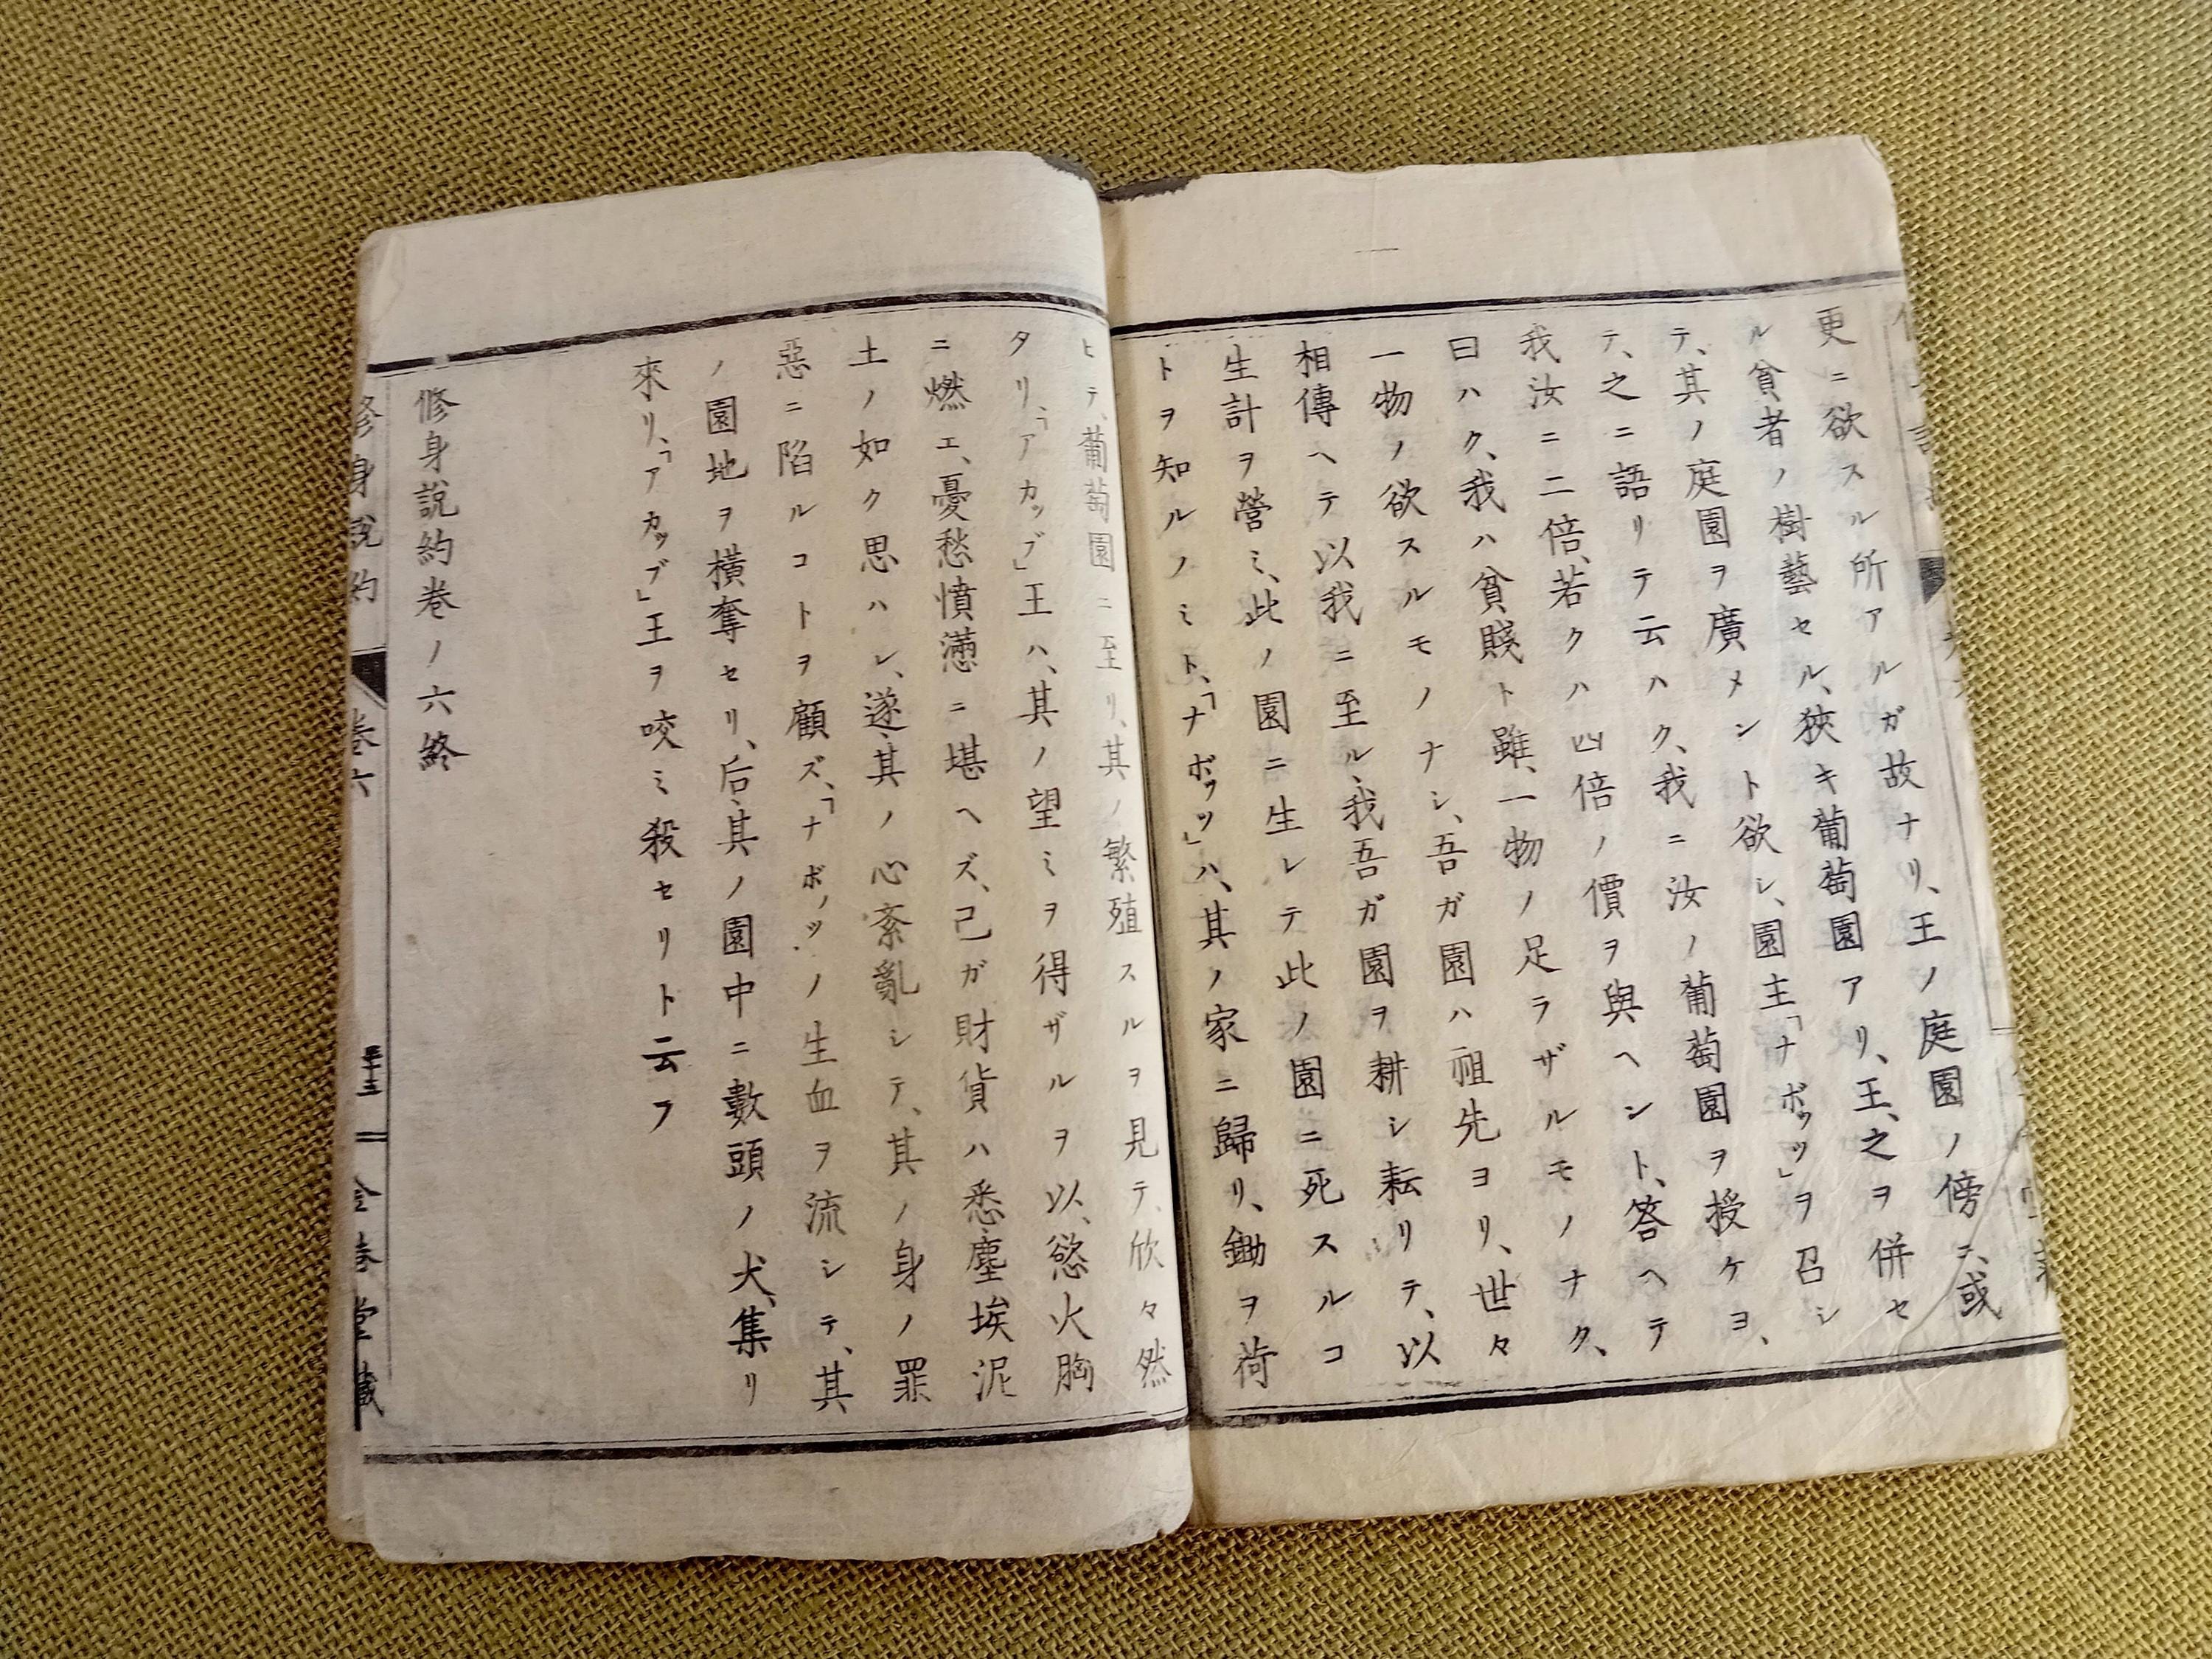 更ニ欲スル所アルガ故ナリ、王ノ庭園ノ傍ニ、或
ル貧者ノ樹藝セル、狹キ葡萄園アリ、王、之ヲ併セ
テ、其ノ庭園ヲ廣メント欲シ、園主「ナボッツ」ヲ召シ
テ、之ニ語リテ云ハク、我ニ汝ノ葡萄園ヲ授ケヨ、
我汝ニ二倍、若クハ四倍ノ價ヲ與ヘント、答ヘテ
曰ハク、我ハ貧賤ト雖、一物ノ足ラザルモノナク、
一物ノ欲スルモノナシ、吾ガ園ハ祖先ヨリ、世々
相傳ヘテ以我ニ至ル、我吾ガ園ヲ耕シ耘リテ、以
生計ヲ營ミ、此ノ園ニ生レテ此ノ園ニ死スルコ
トヲ知ルノミト、「ナボッツ」ハ、其ノ家ニ歸リ、鋤ヲ荷
ヒテ、葡萄園ニ至リ、其ノ繁殖スルヲ見テ、欣々然
タリ、「アカッブ」王ハ、其ノ望ミヲ得ザルヲ以、慾火胸
ニ燃エ、憂愁憤懣ニ堪ヘズ、己ガ財貨ハ悉塵埃泥
土ノ如ク思ハレ、遂、其ノ心紊亂シテ、其ノ身ノ罪
惡ニ陷ルコトヲ顧ズ、「ナボッツ」ノ生血ヲ流シテ、其
ノ園地ヲ橫奪セリ、后、其ノ園中ニ數頭ノ犬、集リ
來リ、「アカッブ」王ヲ咬ミ殺セリト云フ
修身說約卷ノ六終
修身說約 卷六 五十三 金港堂藏